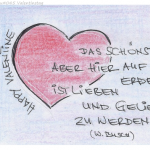 HAPPY VALENTINE
DAS SCHÖNSTE
ABER HIER AUF
ERDE
IST LIEBEN
UND GELIE
ZU WERDEN
(W. BUSCH)